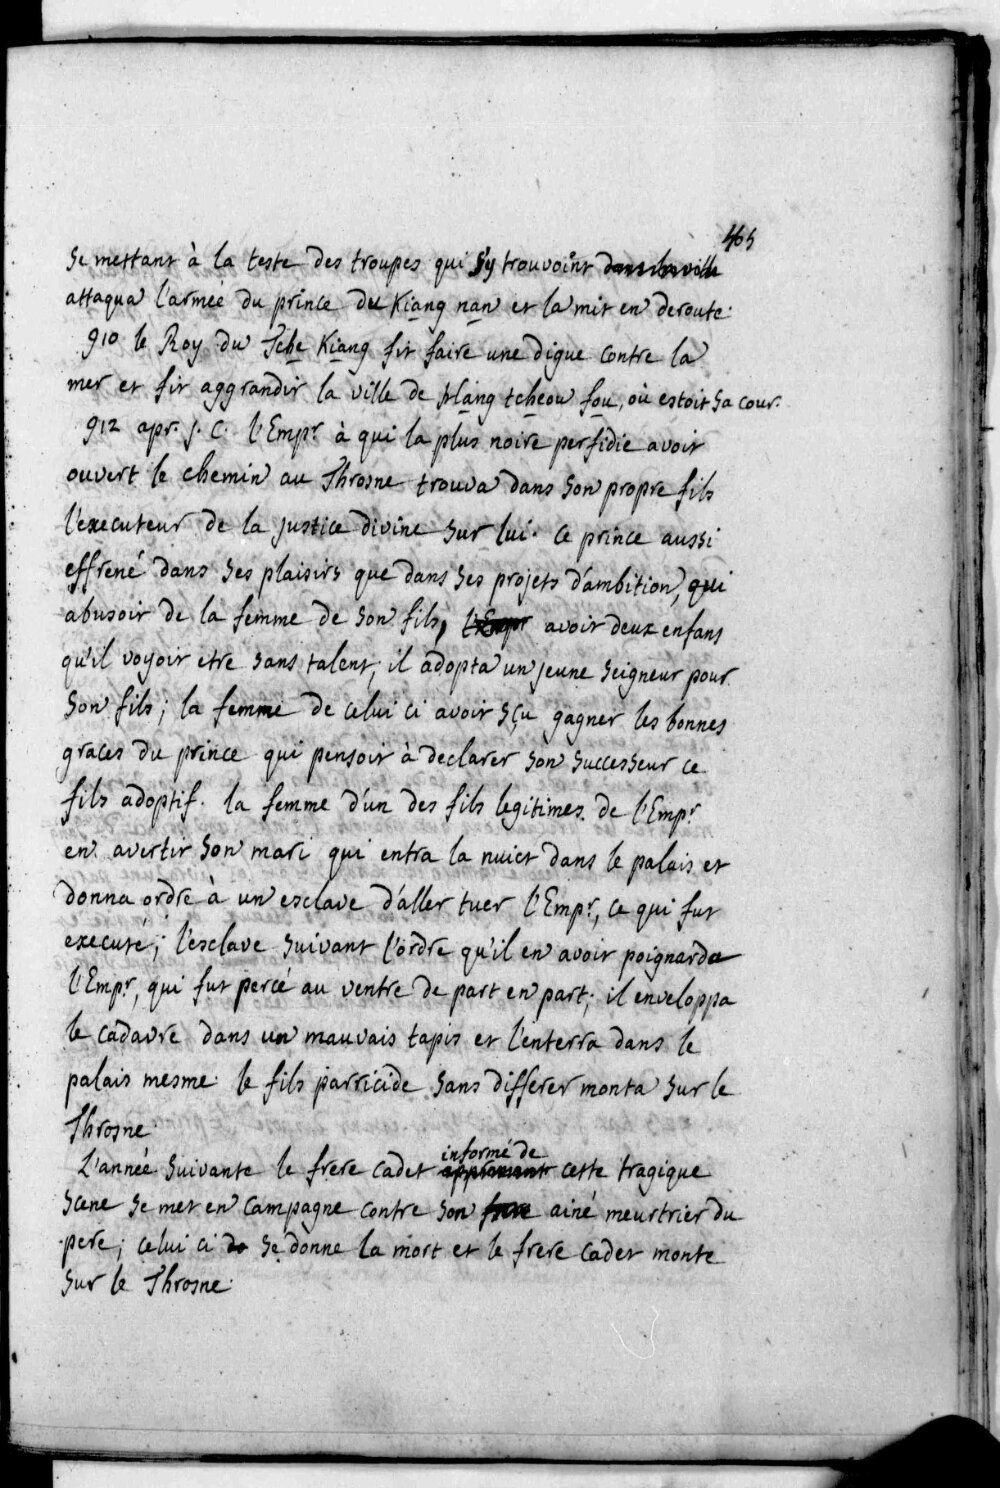 465
se mettant à la teste des troupes qui s'y trouvoint dans la ville
attaqua l'armée du prince du Kiang nan et la mit en deroute.
910 le Roy du Tche Kiang fit faire une digue contre la
mer et fit aggrandir la ville de Hang tcheou fou, où estoit sa cour.
912 apr. J. C. l'Empr à qui la plus noire perfidie avoit
ouvert le chemin au Throsne trouva dans son propre fils
l'executeur de la justice divine sur lui. Ce prince aussi
effrené dans ses plaisirs que dans ses projets d'ambition, qui
abusoit de la femme de son fils, l'Empr avoit deux enfans
qu'il voyoit etre sans talent; il adopta un jeune seigneur pour
son fils; la femme de celui ci avoit sçu gagner les bonnes
graces du prince qui pensoit à declarer son successeur ce
fils adoptif. la femme d'un des fils legitimes de l'Empr
en avertit son mari qui entra la nuict dans le palais et
donna ordre à un esclave d'aller tuer l'Empr, ce qui fut
executé; l'esclave suivant l'ordre qu'il en avoit poignarda
l'Empr, qui fut percé au ventre de part en part; il enveloppa
le cadavre dans un mauvais tapis et l'enterra dans le
palais mesme. le fils parricide sans differer monta sur le
Throsne.
L'année suivante le frere cadet apprenant informé de cette tragique
scene se met en campagne contre son frere ainé meurtrier du
pere; celui ci se donne la mort et le frere cadet monte
sur le Throsne.